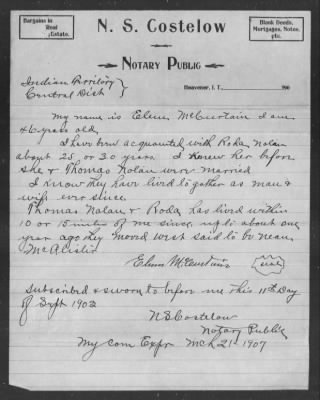 Bargains in
Real
Estate.
N. S. Costelow
Blank Deeds,
Mortgages, Notes,
etc.
NOTARY PUBLIC
Heavener, I. T., 190
Indian Territory
Central Dist
My name is Elum McCurtain I am
46 years old,
I have been acquainted with Roda Nolan
about 25 or 30 years I knew her before
she & Thomas Nolan were married
I know they have lived together as man &
wife ever since.
Thomas Nolan & Roda has lived within
10 or 15 miles of me since up to about one
year ago they moved west said to be near
McAlister
Elum McCurtain
Seal
Subscribed & sworn to before me this 11th Day
of Sept 1902
N S Costelow
Notary Public
My Com Expr Mch 21 - 1907